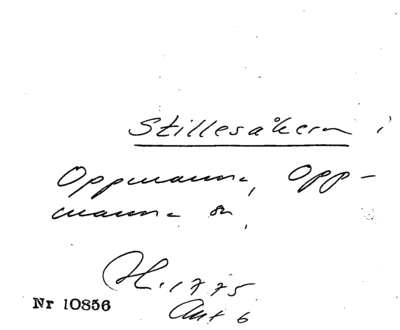 Stillesåkern i
Oppmanna, Opp-
manna sn.
H. 1775
Akt 6
Nr 10856